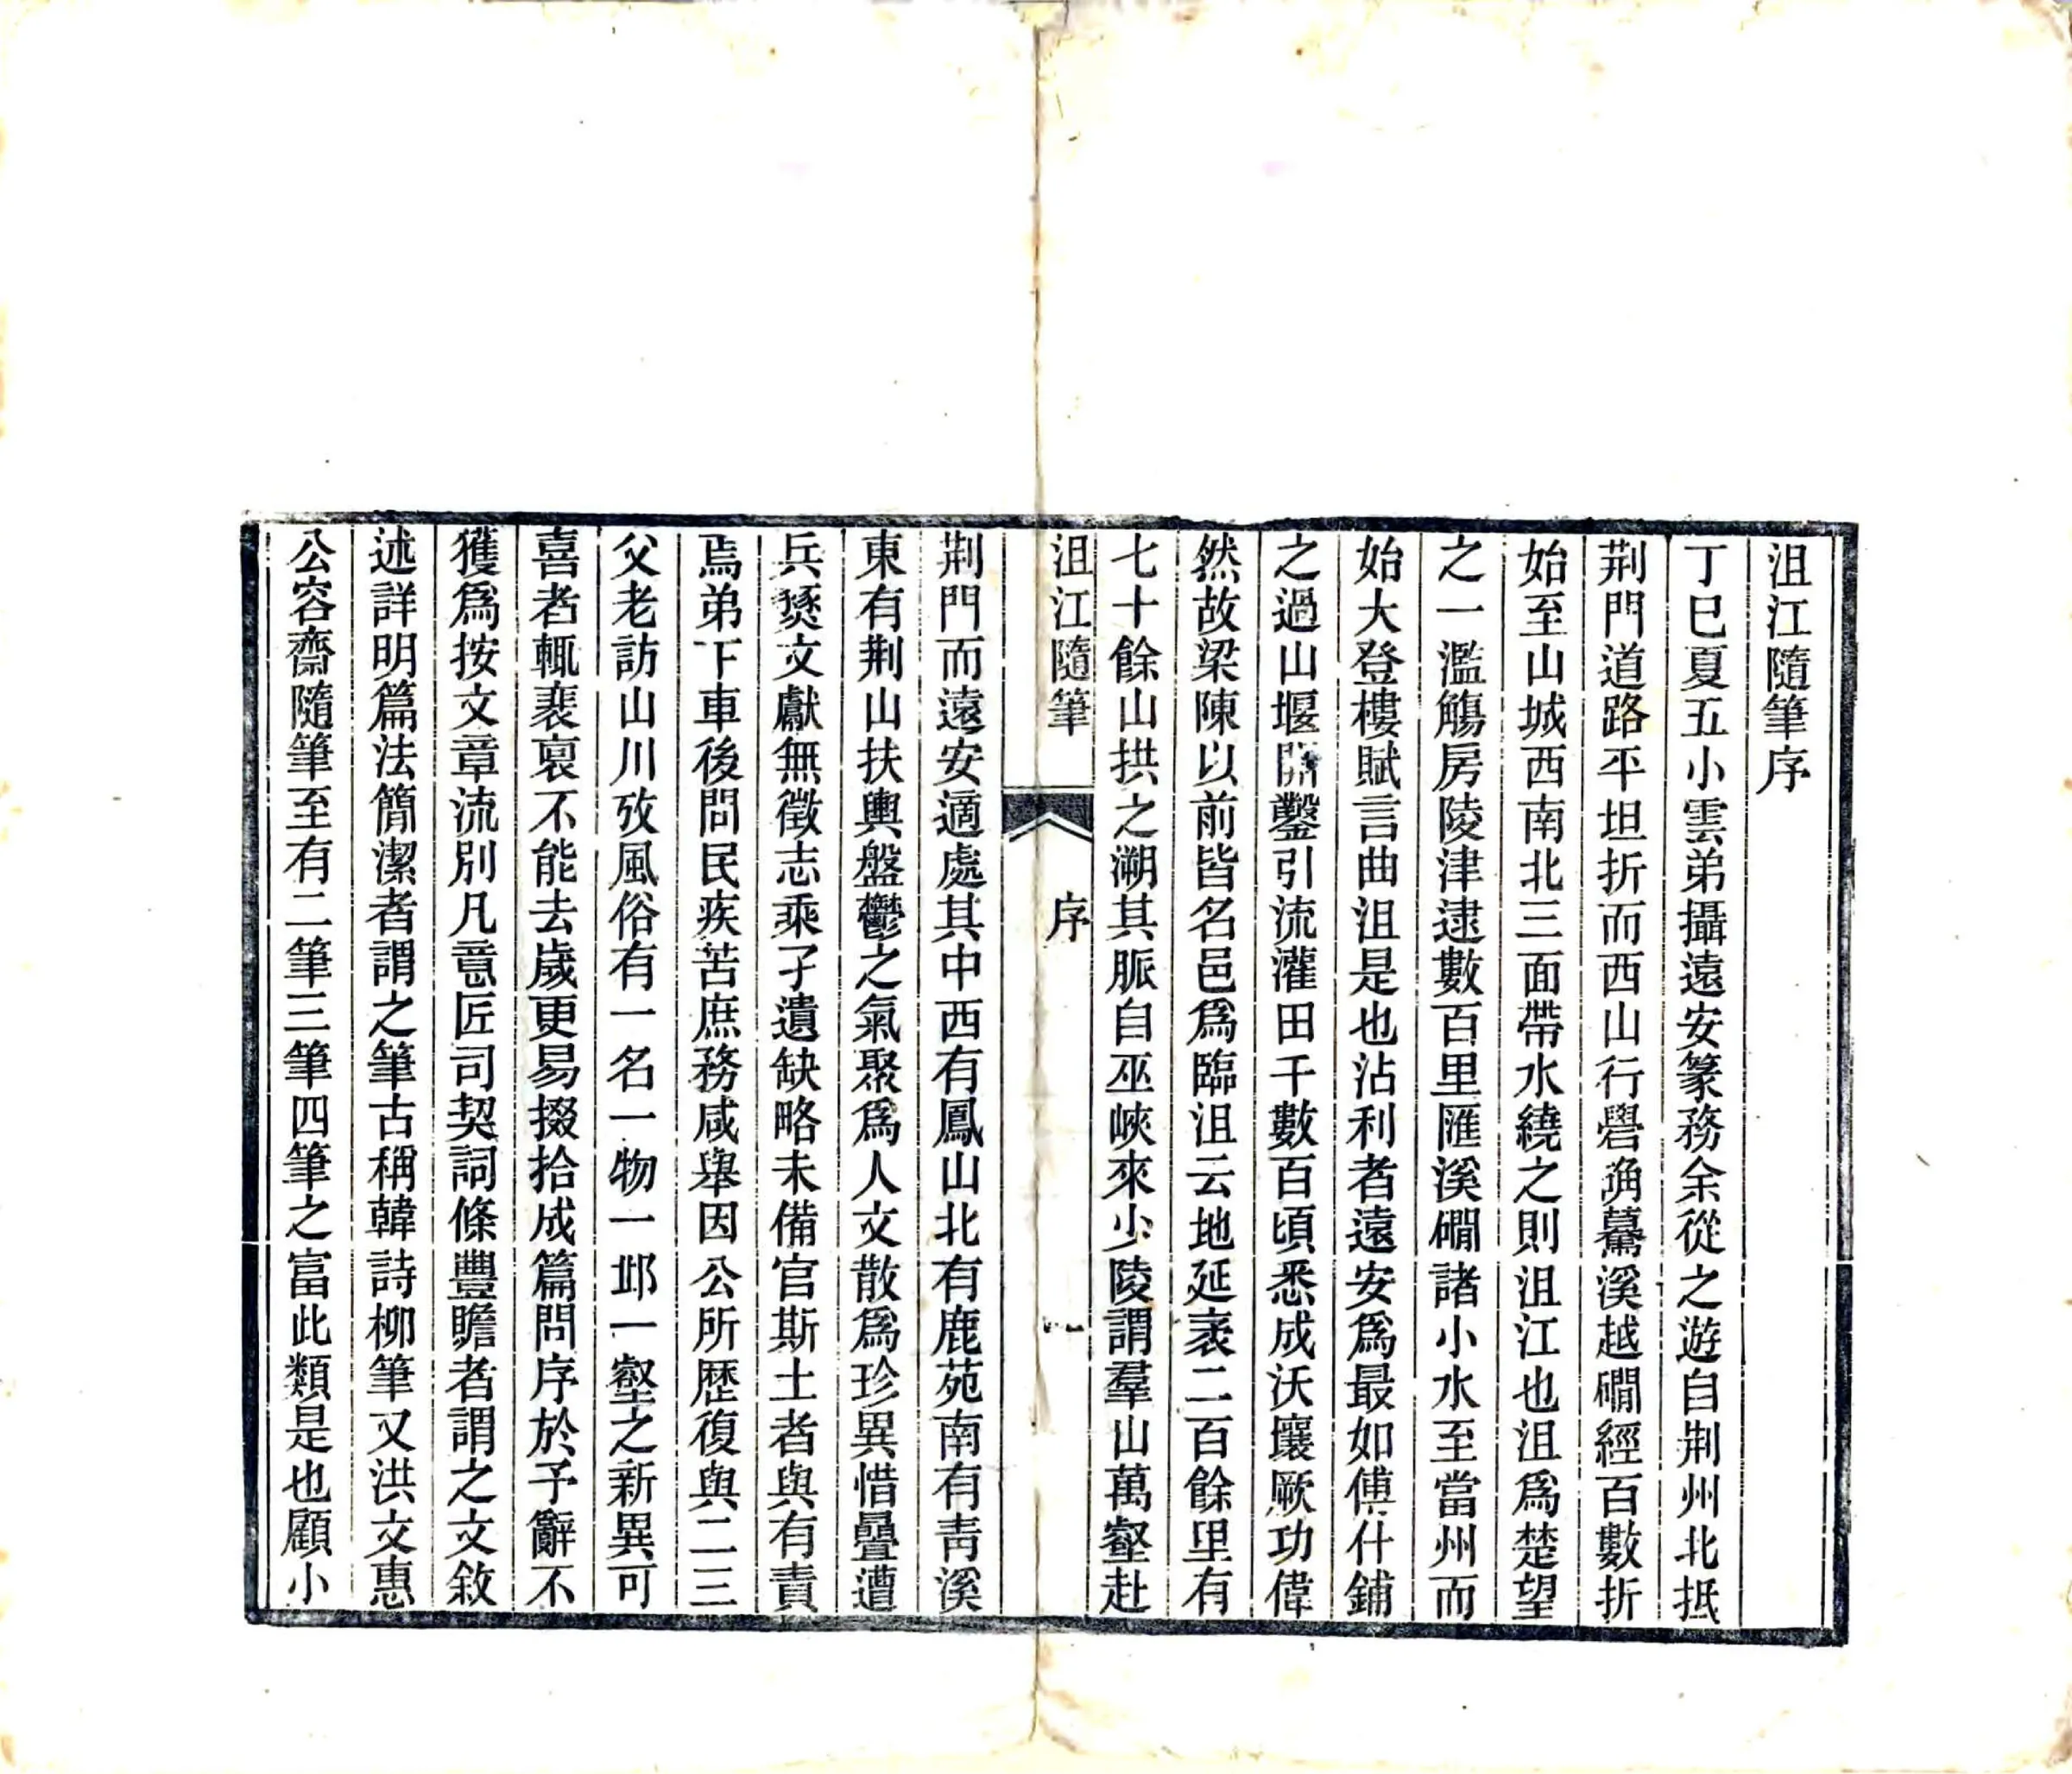 沮江隨筆序
丁巳夏五小雲弟攝遠安篆務余從之遊自荆州北抵
荆門道路平坦折而西山行礐确驀溪越磵經百數折
始至山城西南北三面帶水繞之則沮江也沮爲楚望
之一濫觴房陵津逮數百里匯溪磵諸小水至當州而
始大登樓賦言曲沮是也沾利者遠安爲最如傅什鋪
之過山堰開鑿引流灌田千數百頃悉成沃壤厥功偉
然故梁陳以前皆名邑爲臨沮云地延袤二百餘里有
七十餘山拱之溯其脈自巫峽來少陵謂羣山萬壑赴
沮江隨筆
序
一
荆門而遠安適處其中西有鳳山北有鹿苑南有靑溪
東有荆山扶輿盤鬱之氣聚爲人文散爲珍異惜疊遭
兵燹文獻無徵志乘孑遺缺略未備官斯土者與有責
焉弟下車後問民疾苦庶務咸舉因公所歷復與二三
父老訪山川攷風俗有一名一物一邱一壑之新異可
喜者輒裴裒不能去歲更易掇拾成篇問序於予辭不
獲爲按文章流別凡意匠司契詞條豐贍者謂之文敘
述詳明篇法簡潔者謂之筆古稱韓詩柳筆又洪文惠
公容齋隨筆至有二筆三筆四筆之富此類是也顧小